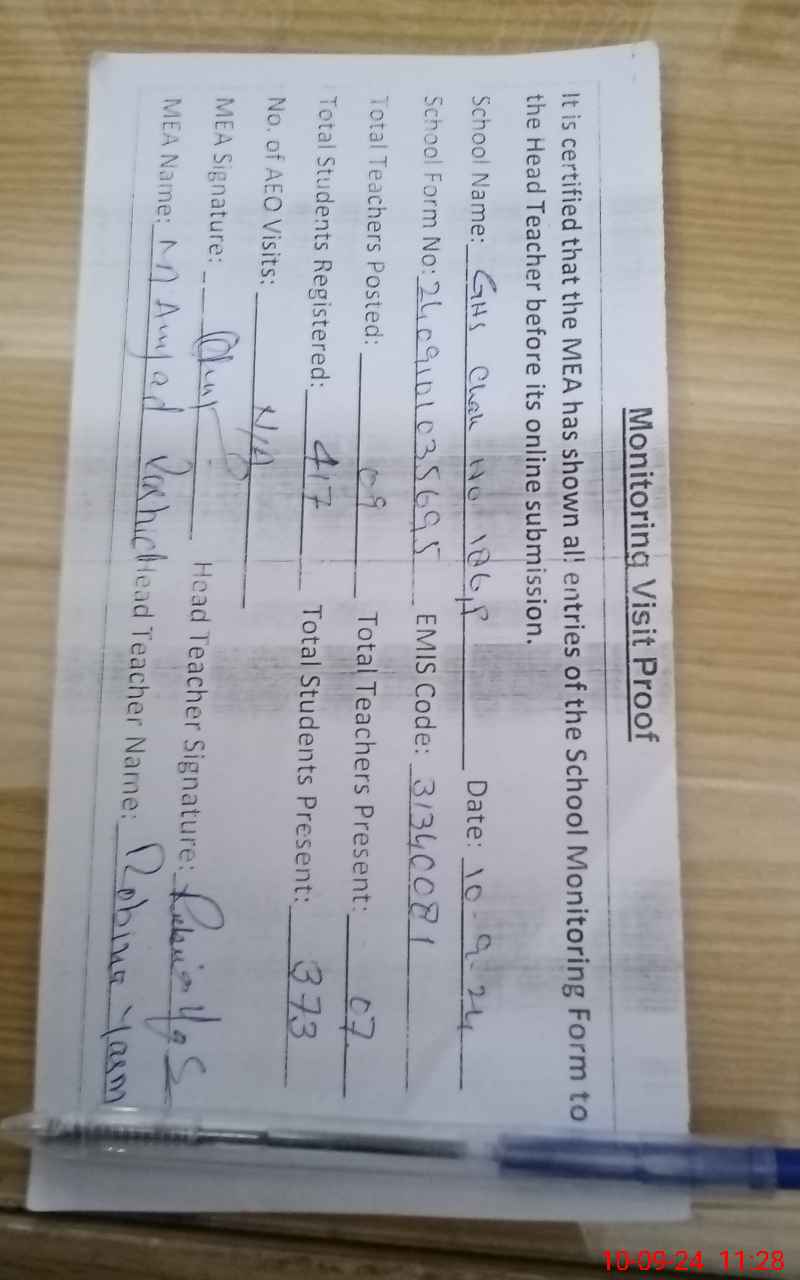 Monitoring Visit Proof
It is certified that the MEA has shown all entries of the School Monitoring Form to
the Head Teacher before its online submission.
School Name: GHS Chak No 186P Date: 10-9-24
School Form No: 2409101035695 EMIS Code: 31340081
Total Teachers Posted: 09 Total Teachers Present: 07
Total Students Registered: 417 Total Students Present: 373
No. of AEO Visits: N/A
MEA Signature: Head Teacher Signature:
MEA Name: M Amjad Head Teacher Name: Robina Yasm
10-09-24 11:28